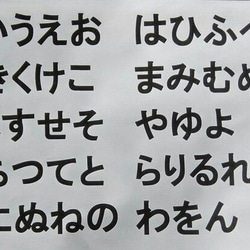 うえお はひふへ
きくけこ まみむめ
すせそ やゆよ
ちつてと らりるれ
にぬねの わをん